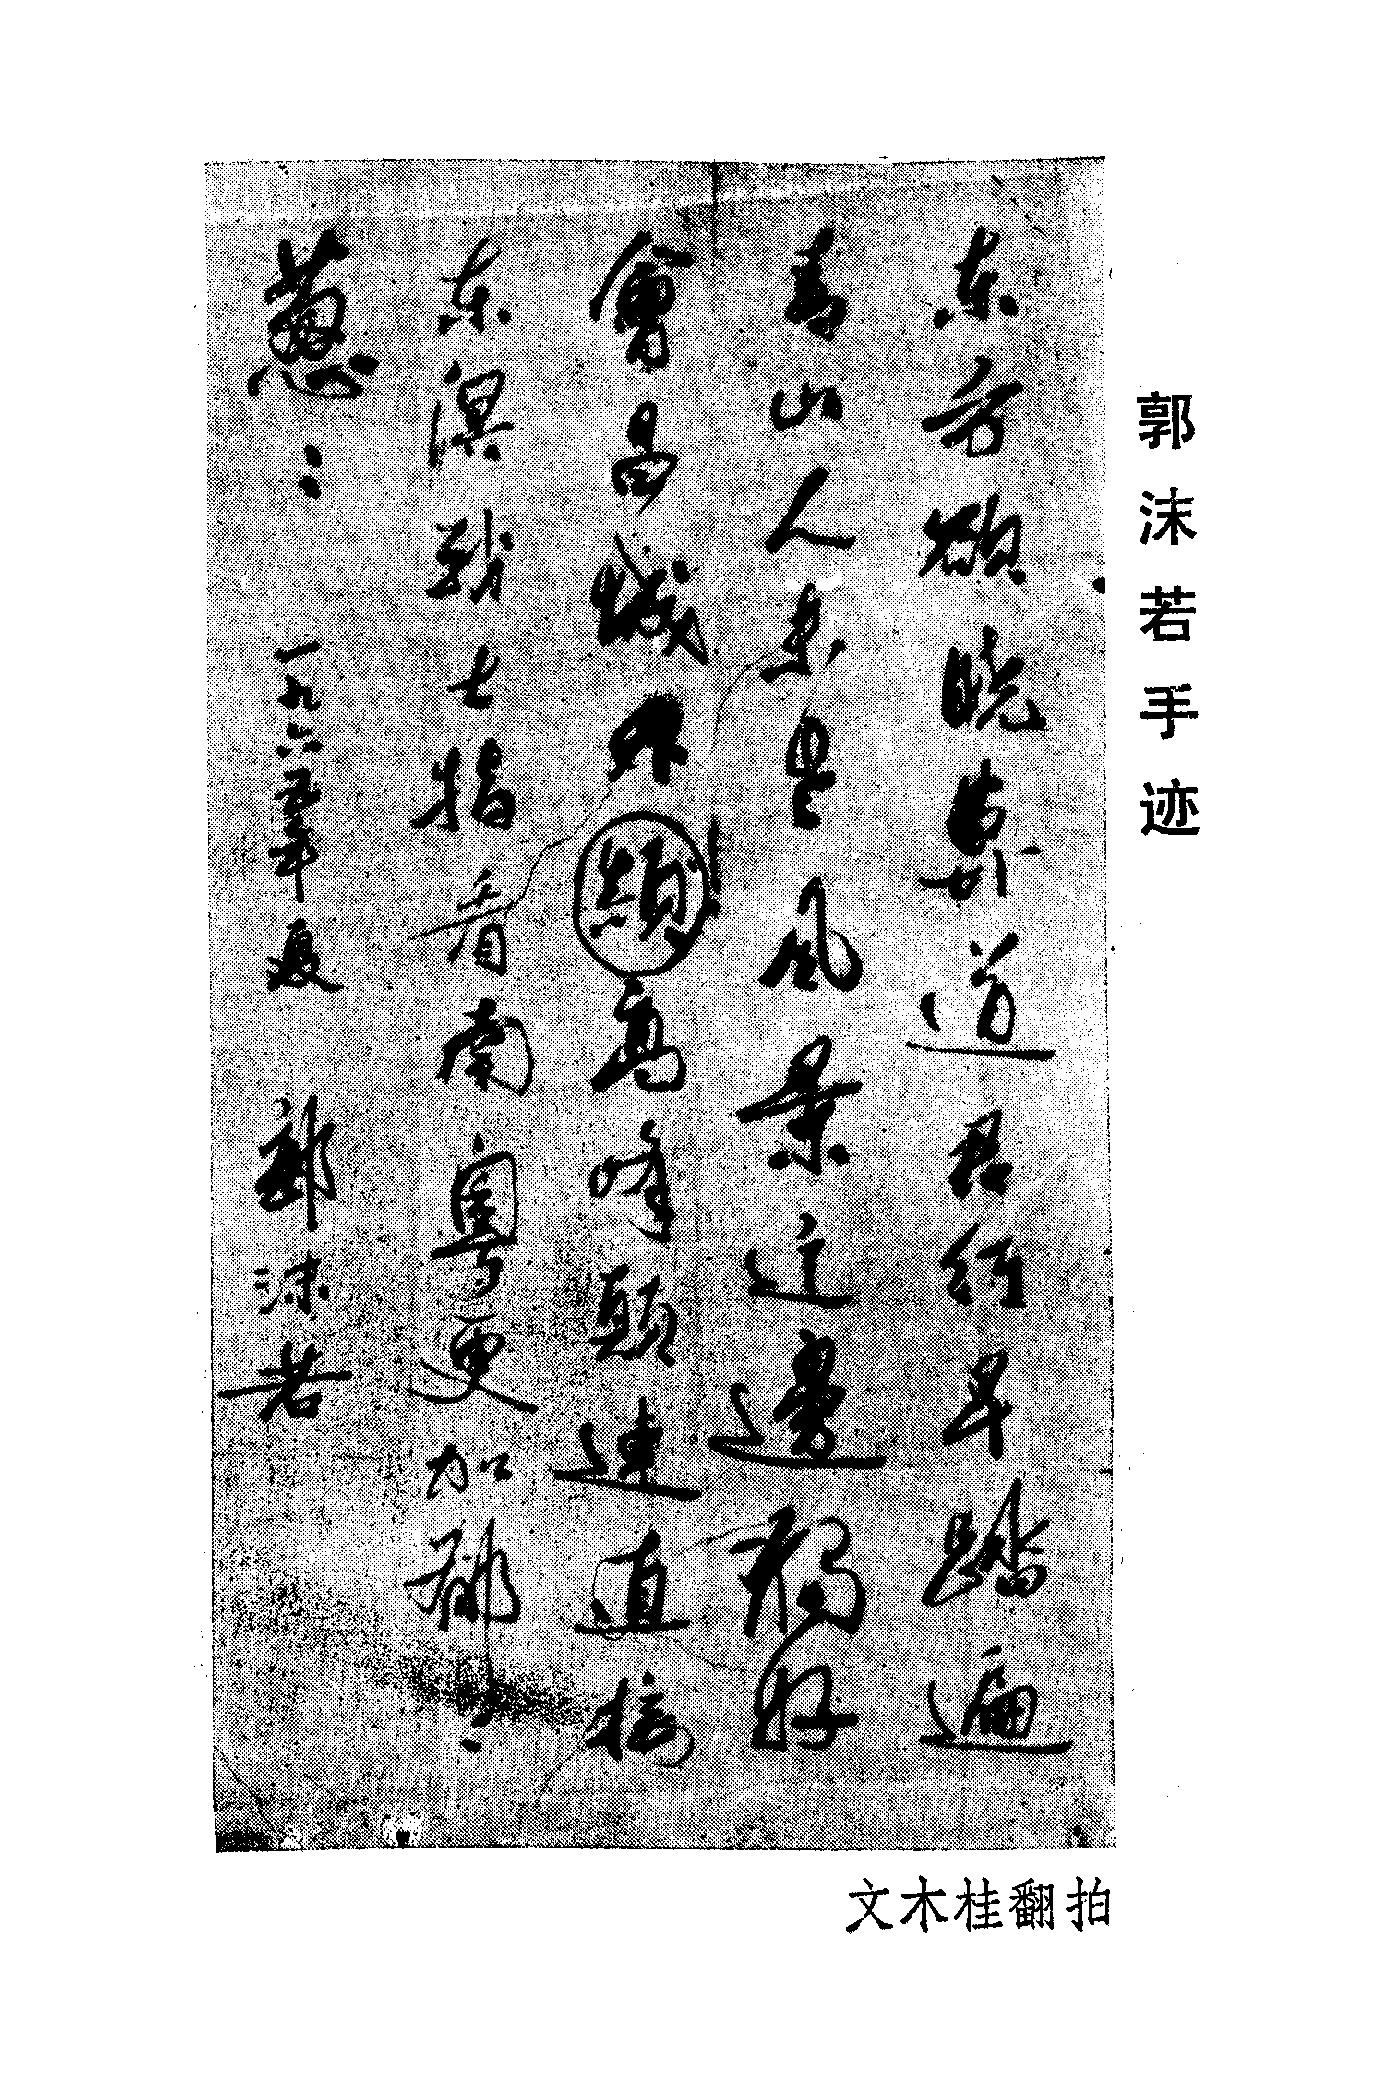 郭沫若手迹
东方欲晓莫道君行早踏遍
青山人未老风景这邊獨好
會昌城外顛高峰顛連直接
东溟战士指看南粤更加郁々
蔥々 一九六五年夏 郭沫若
文木桂翻拍